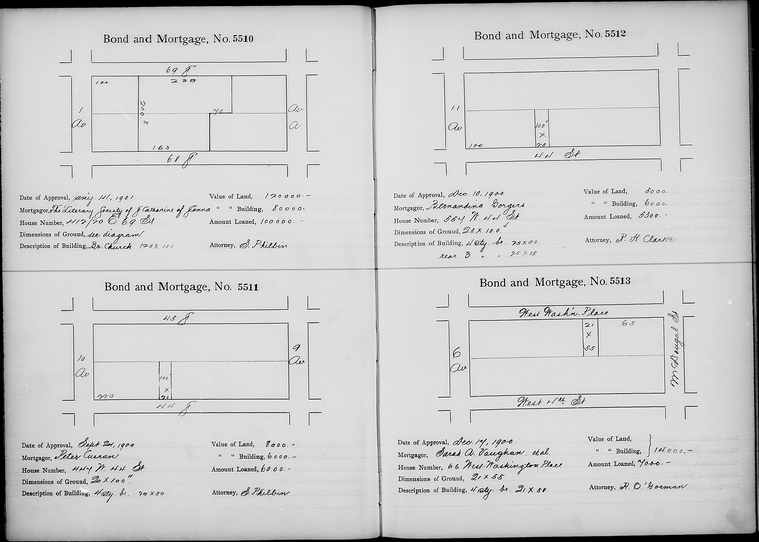 Bond and Mortgage, No. 5510
69 St
100 220
1 Av
200.8
75
Av A
165
68 St
Date of Approval, 14, 1901 Value of Land, 120000.-
Mortgagor, The Literary Society of St Catharine of Sienna " " Building, 80000.-
House Number, 412/20 E 69 St Amount Loaned, 100000.-
Dimensions of Ground, see diagram
Description of Building, Church 125 x 100 Attorney, S. Philbin
Bond and Mortgage, No. 5511
45 St
10 Av
9 Av
100'
x
20
220
44 St
Date of Approval, Sept 24, 1900 Value of Land, 8000.-
Mortgagor, Peter Curran " " Building, 6000.-
House Number, 447 W. 44 St Amount Loaned, 6000.-
Dimensions of Ground, 20 x 100"
Description of Building, 4 sty. br. 20 x 50 Attorney, S. Philbin
Bond and Mortgage, No. 5512
11 Av
100'
x
25
100
44 St
Date of Approval, Dec. 10, 1900 Value of Land, 5000.
Mortgagor, Gorgers " " Building, 6000.
House Number, 554 W. 44 St Amount Loaned, 5500.-
Dimensions of Ground, 25 x 100'
Description of Building, 4 sty. br. 25 x 50 Attorney, P. H Clarke
rear 3 " " 25 x 15
Bond and Mortgage, No. 5513
West Wash'n. Place
21
x
55
65
6 Av
McDougal St
West 4th St
Date of Approval, Dec 17, 1900 Value of Land,
Mortgagor, Sarah A. Vaughan, et al. " " Building, 14000.-
House Number, 66 West Washington Place Amount Loaned, 7000.-
Dimensions of Ground, 21 x 55
Description of Building, 4 sty. br. 21 x 50 Attorney, R. O'Gorman